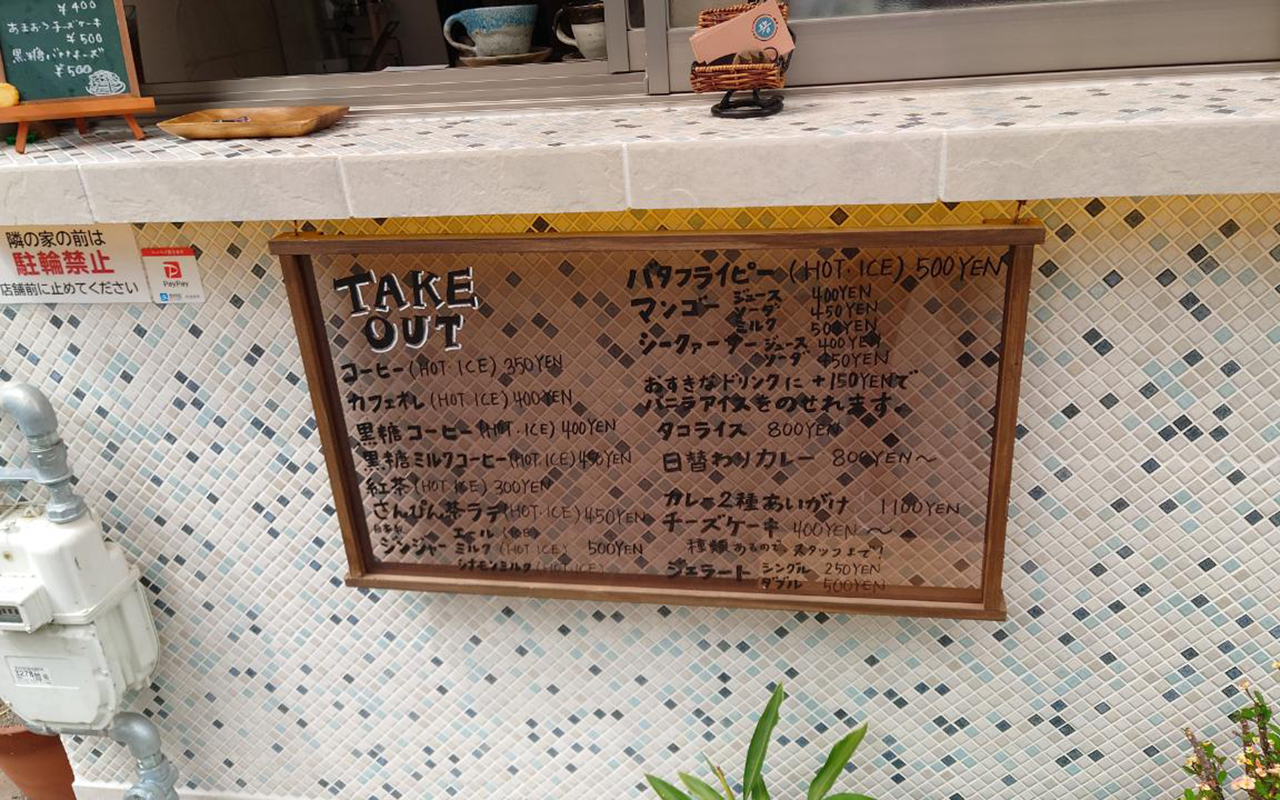 ¥400
あまおうチーズケーキ
¥500
黒糖バナナチーズ
¥500
隣の家の前は
駐輪禁止
店舗前に止めてください
PayPay
TAKE
OUT
コーヒー(HOT・ICE) 350YEN
カフェオレ(HOT・ICE) 400YEN
黒糖コーヒー(HOT・ICE) 400YEN
黒糖ミルクコーヒー(HOT・ICE) 450YEN
紅茶(HOT・ICE) 300YEN
さんぴん茶ラテ(HOT・ICE) 450YEN
エール(ICE)
ジンジャー ミルク(HOT・ICE) 500YEN
シナモンミルク(HOT・ICE)
バタフライピー(HOT・ICE) 500YEN
マンゴー ジュース 400YEN
ソーダ 450YEN
ミルク 500YEN
シークァーサー ジュース 400YEN
ソーダ 450YEN
おすきなドリンクに+150YENで
バニラアイスをのせれます。
タコライス 800YEN
日替わりカレー 800YEN〜
カレー2種あいがけ 1100YEN
チーズケーキ 400YEN〜
種類あるので、スタッフまで!
ジェラート シングル 250YEN
ダブル 500YEN